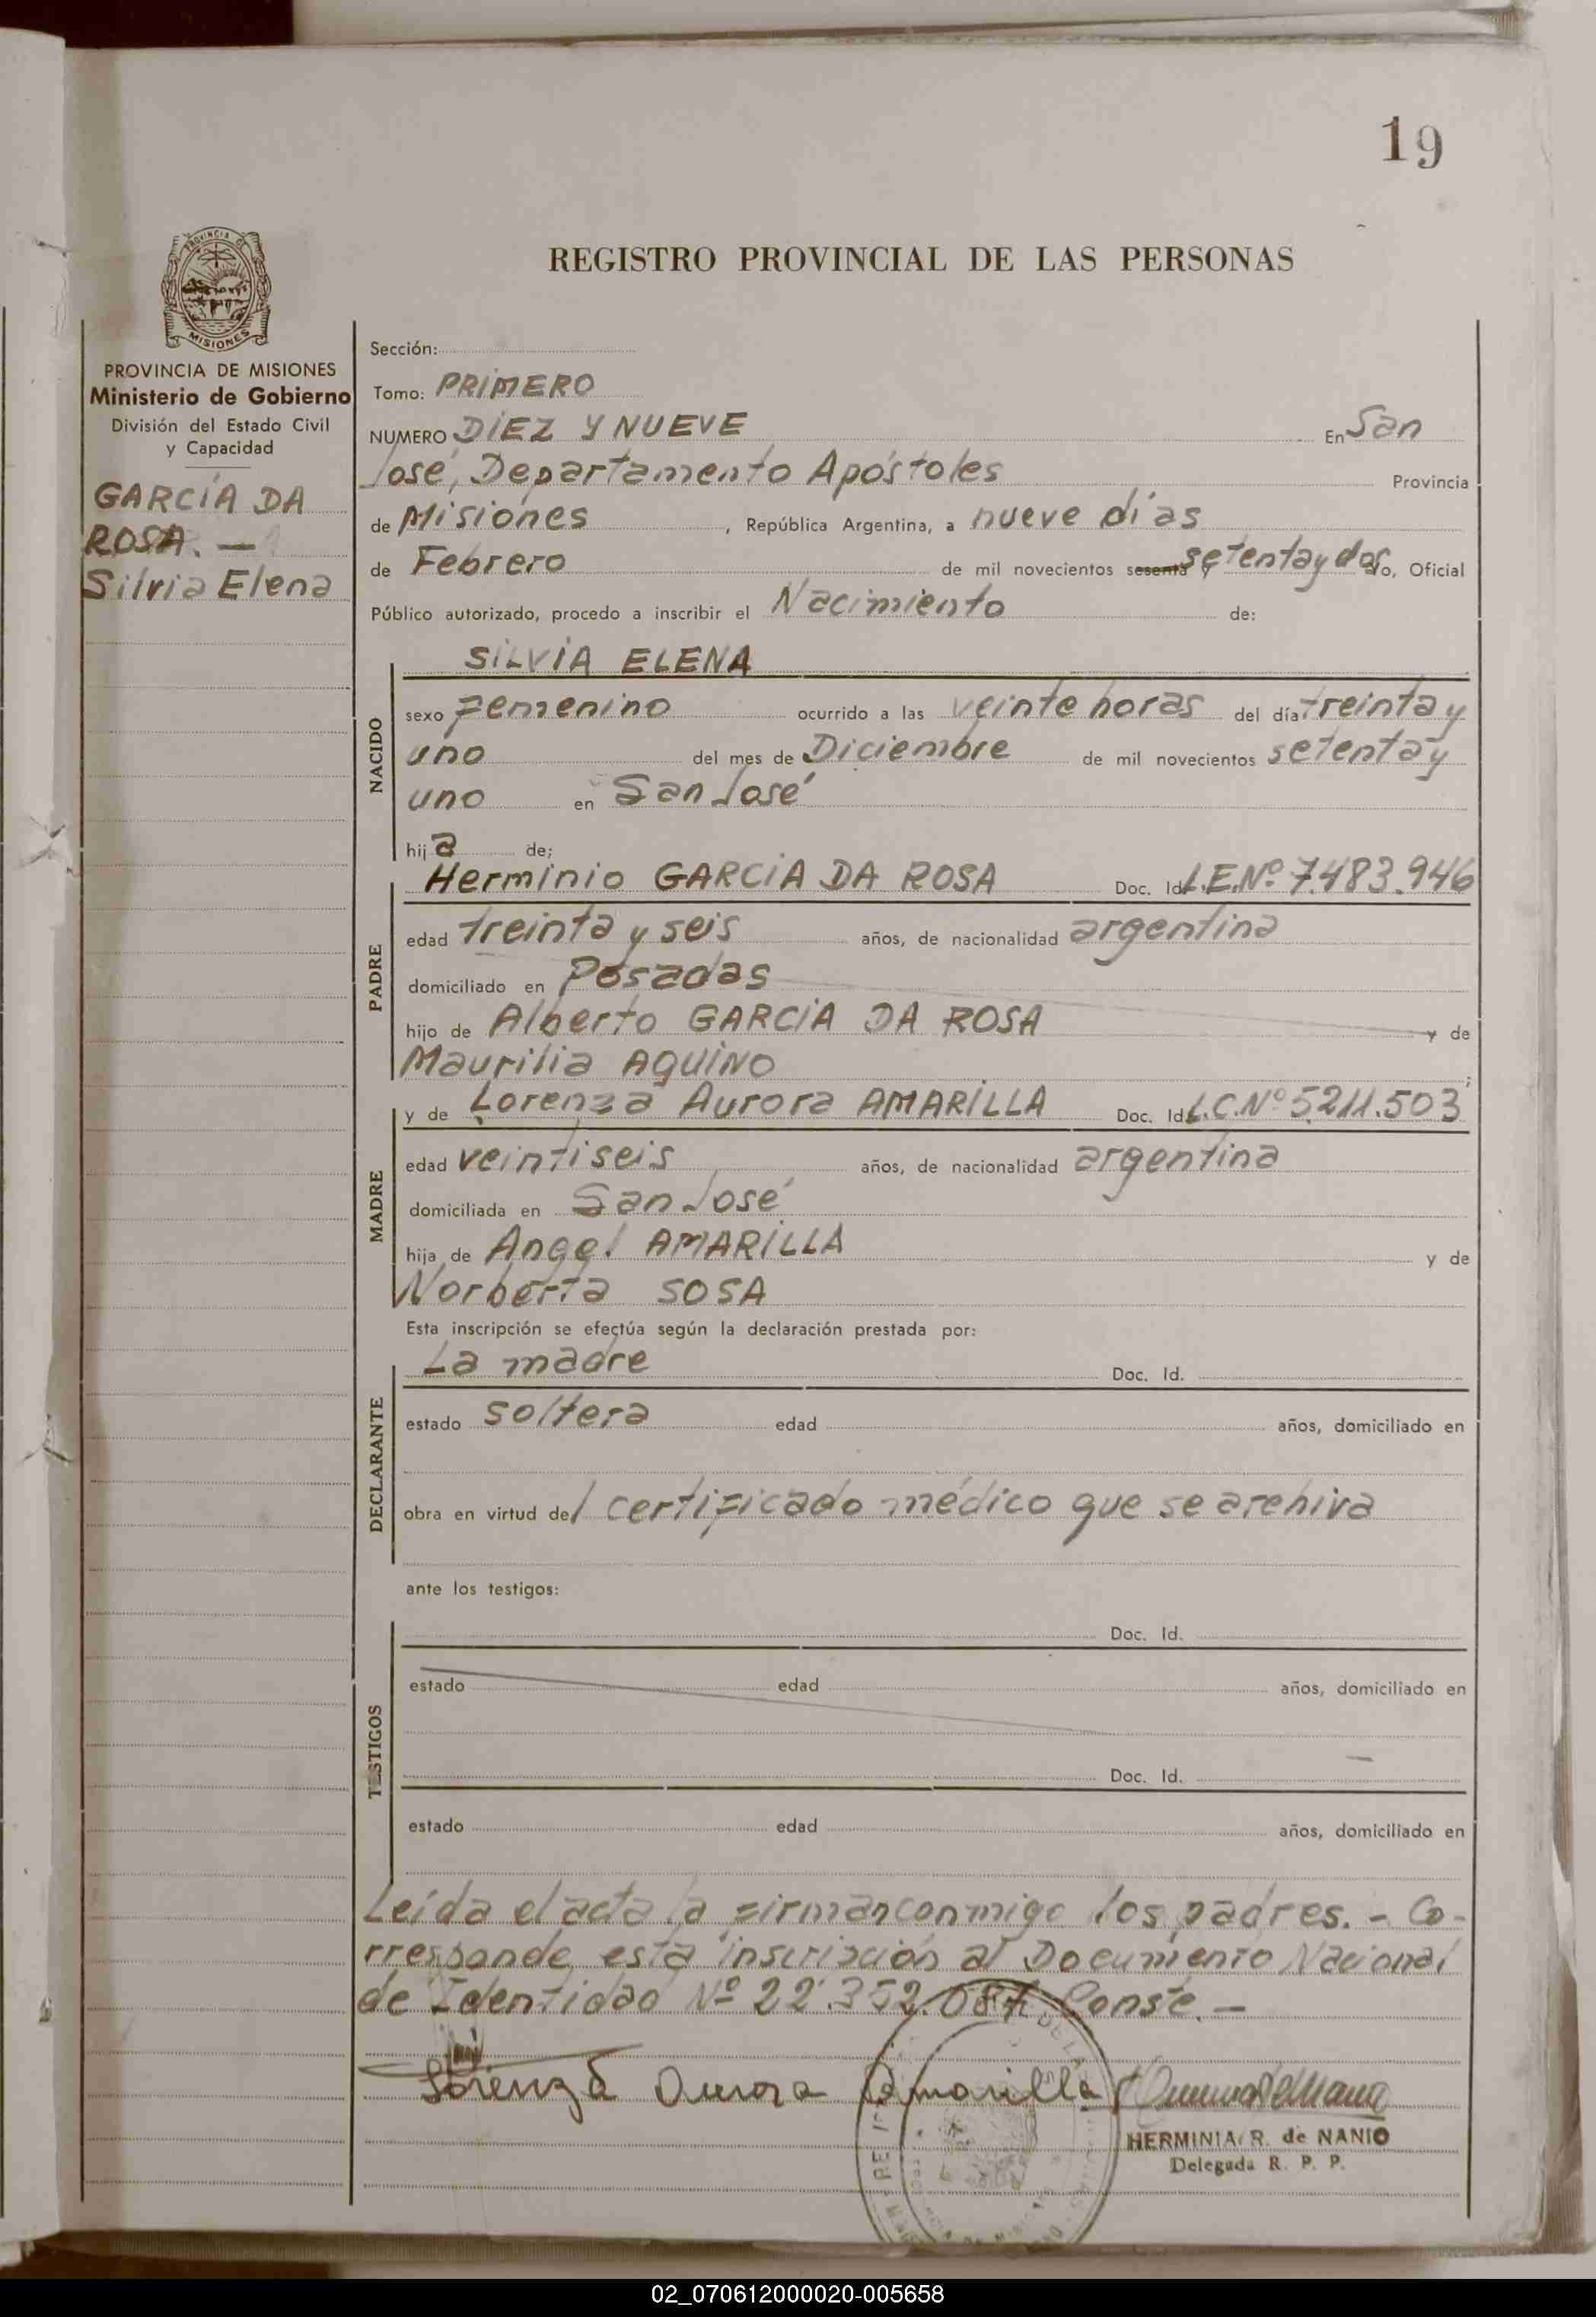 19
PROVINCIA DE
MISIONES
REGISTRO PROVINCIAL DE LAS PERSONAS
PROVINCIA DE MISIONES
Ministerio de Gobierno
División del Estado Civil
y Capacidad
GARCÍA DA
ROSA. —
Silvia Elena
Sección:
Tomo: PRIMERO
NUMERO DIEZ Y NUEVE En San
José, Departamento Apóstoles Provincia
de Misiones, República Argentina, a nueve días
de Febrero de mil novecientos sesenta y setenta y dos, Oficial
Público autorizado, procedo a inscribir el Nacimiento de:
NACIDO
SILVIA ELENA
sexo Femenino ocurrido a las veinte horas del día treinta y
uno del mes de Diciembre de mil novecientos setenta y
uno en San José
hija de;
PADRE
Herminio GARCIA DA ROSA Doc. Id L.E.Nº 7.483.946
edad treinta y seis años, de nacionalidad argentina
domiciliado en Posadas
hijo de Alberto GARCIA DA ROSA y de
Maurilia AQUINO ;
MADRE
y de Lorenza Aurora AMARILLA Doc. Id L.C.Nº 5.211.503
edad veintiseis años, de nacionalidad argentina
domiciliada en San José
hija de Angel AMARILLA y de
Norberta SOSA
Esta inscripción se efectúa según la declaración prestada por:
DECLARANTE
La madre Doc. Id.
estado soltera edad años, domiciliado en
obra en virtud del certificado médico que se archiva
ante los testigos:
TESTIGOS
Doc. Id.
estado edad años, domiciliado en
Doc. Id.
estado edad años, domiciliado en
Leída el acta la firman conmigo los padres. - Co-
rresponde esta inscripción al Documento Nacional
de Identidad Nº 22.352.087. Conste. —
Lorenza Aurora Amarilla
HERMINIA R. de NANIO
Delegada R. P. P.
02_070612000020-005658